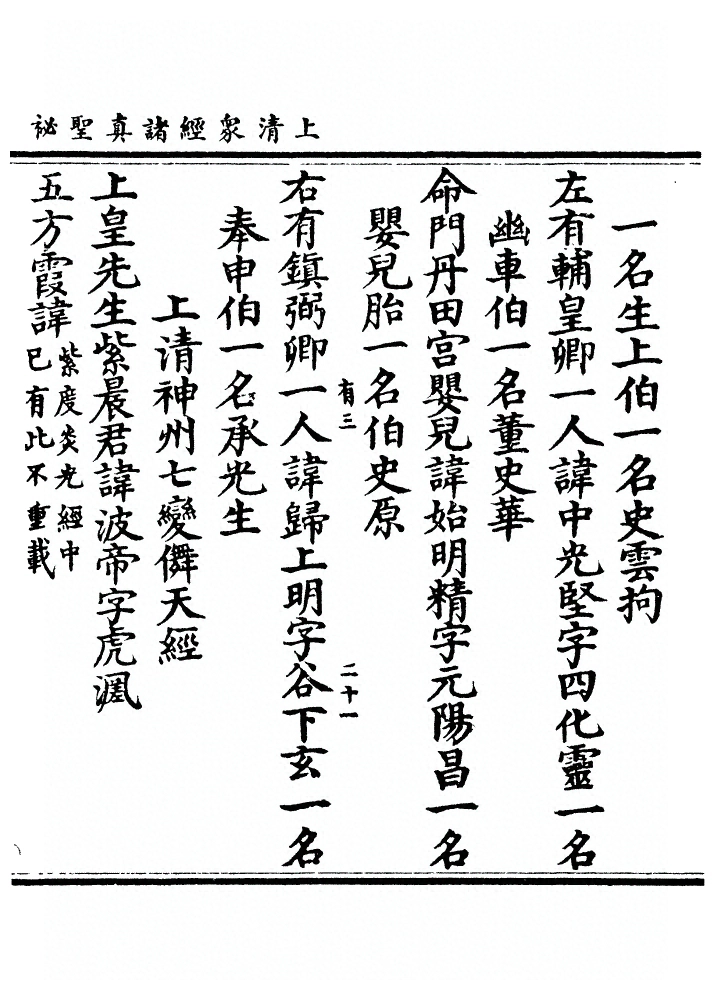 上清衆經諸真聖祕
一名生上伯一名史雲拘
左有輔皇卿一人諱中光堅字四化靈一名
幽車伯一名董史華
命門丹田宮嬰兒諱始明精字元陽昌一名
嬰兒胎一名伯史原
有三
二十一
右有鎮弼卿一人諱歸上明字谷下玄一名
奉申伯一名承光生
上清神州七變儛天經
上皇先生紫晨君諱波帝字虎淍
五方霞諱
紫度炎光經中
已有此不重載